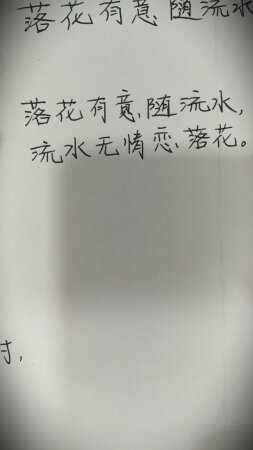 落花有意随流水
落花有意随流水,
流水无情恋落花。
时,